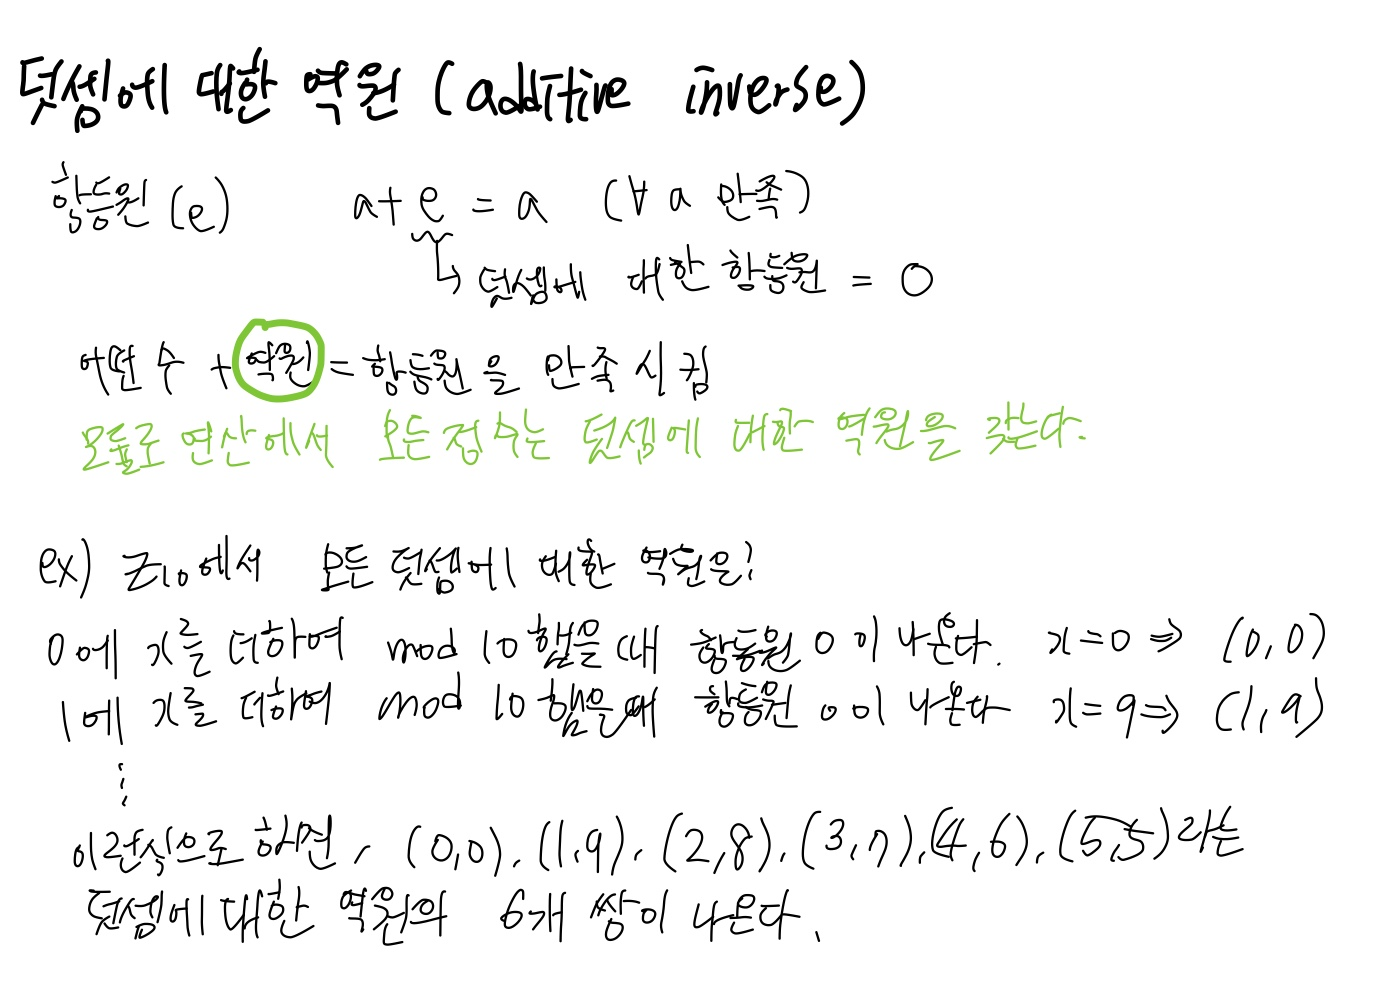 덧셈에 대한 역원 (additive inverse)
항등원 (e) a+e = a (∀a 만족)
↳ 덧셈에 대한 항등원 = 0
어떤 수 + 역원 = 항등원을 만족시킴
모듈로 연산에서 모든 정수는 덧셈에 대한 역원을 갖는다.
ex) Z10에서 모든 덧셈에 대한 역원은?
0에 x를 더하여 mod 10 했을때 항등원 0이 나온다. x=0 ⇒ (0,0)
1에 x를 더하여 mod 10 했을때 항등원 0이 나온다 x=9 ⇒ (1,9)
⋮
이런식으로 하면, (0,0), (1,9), (2,8), (3,7), (4,6), (5,5)라는
덧셈에 대한 역원의 6개 쌍이 나온다.